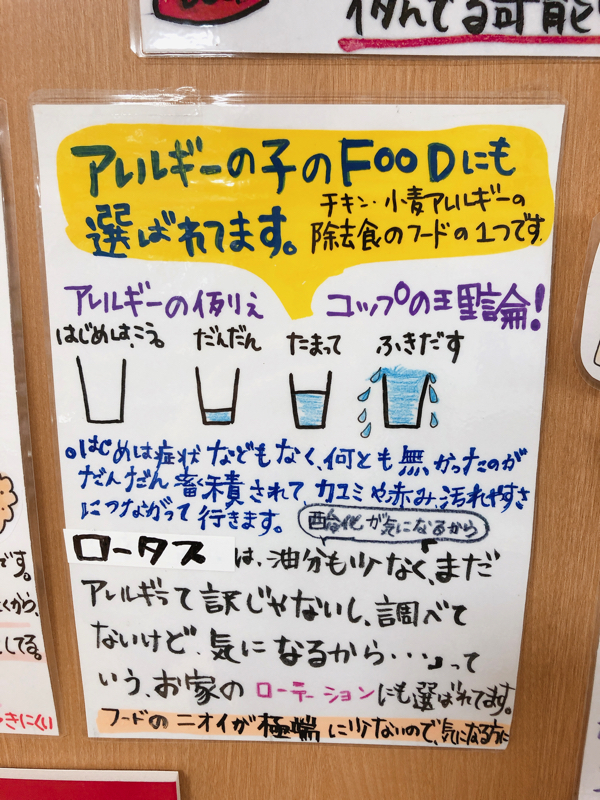 似てる可能
アレルギーの子のFOODにも
選ばれてます。
チキン・小麦アレルギーの
除去食のフードの1つです。
アレルギーの例え
コップの理論!
はじめは、こう。
だんだん
たまって
ふきだす
。はじめは症状などもなく、何とも無かったのが
だんだん蓄積されて カユミや赤み、汚れやすさ
につながって行きます。
酸化が気になるから
ロータス
は、油分も少なく、「まだ
アレルギーって訳じゃないし、調べて
ないけど、気になるから・・・」って
いう、お家の ローテーションにも選ばれてます。
フードのニオイが極端に少ないので、気になる方に
です。
くから、
してる。
きにくい